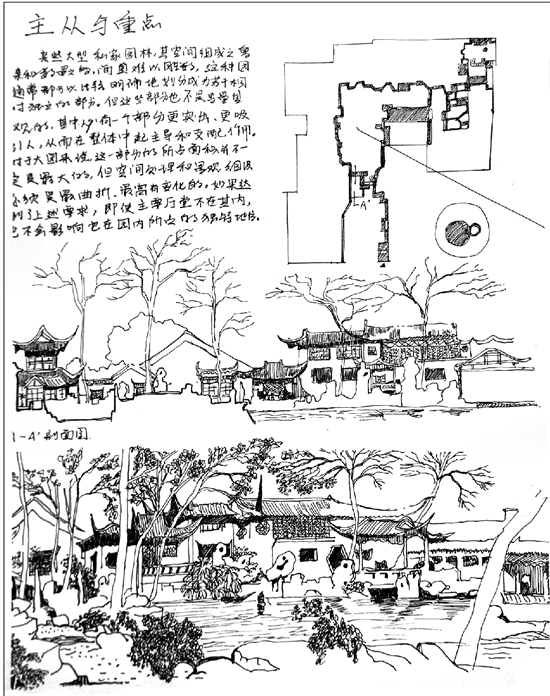 主从与重点
某些大型私家园林,其空间组成之复
杂和
通常都可以比较明确地划分成为若干相
对独立的部分。但这些部分也不是等量齐
观的,其中必有一个部分更突出、更吸
引人,从而在整体中起主导和支配作用。
对于大园来说,这一部分的所占面积并不一
定是最大的,但空间处理和景观组织
必须是最曲折、最富有变化的。如果达
到上述要求,即使主要厅堂不在其内,
也不会影响它在园内所占的独特地位。
A'
1-A'剖面图